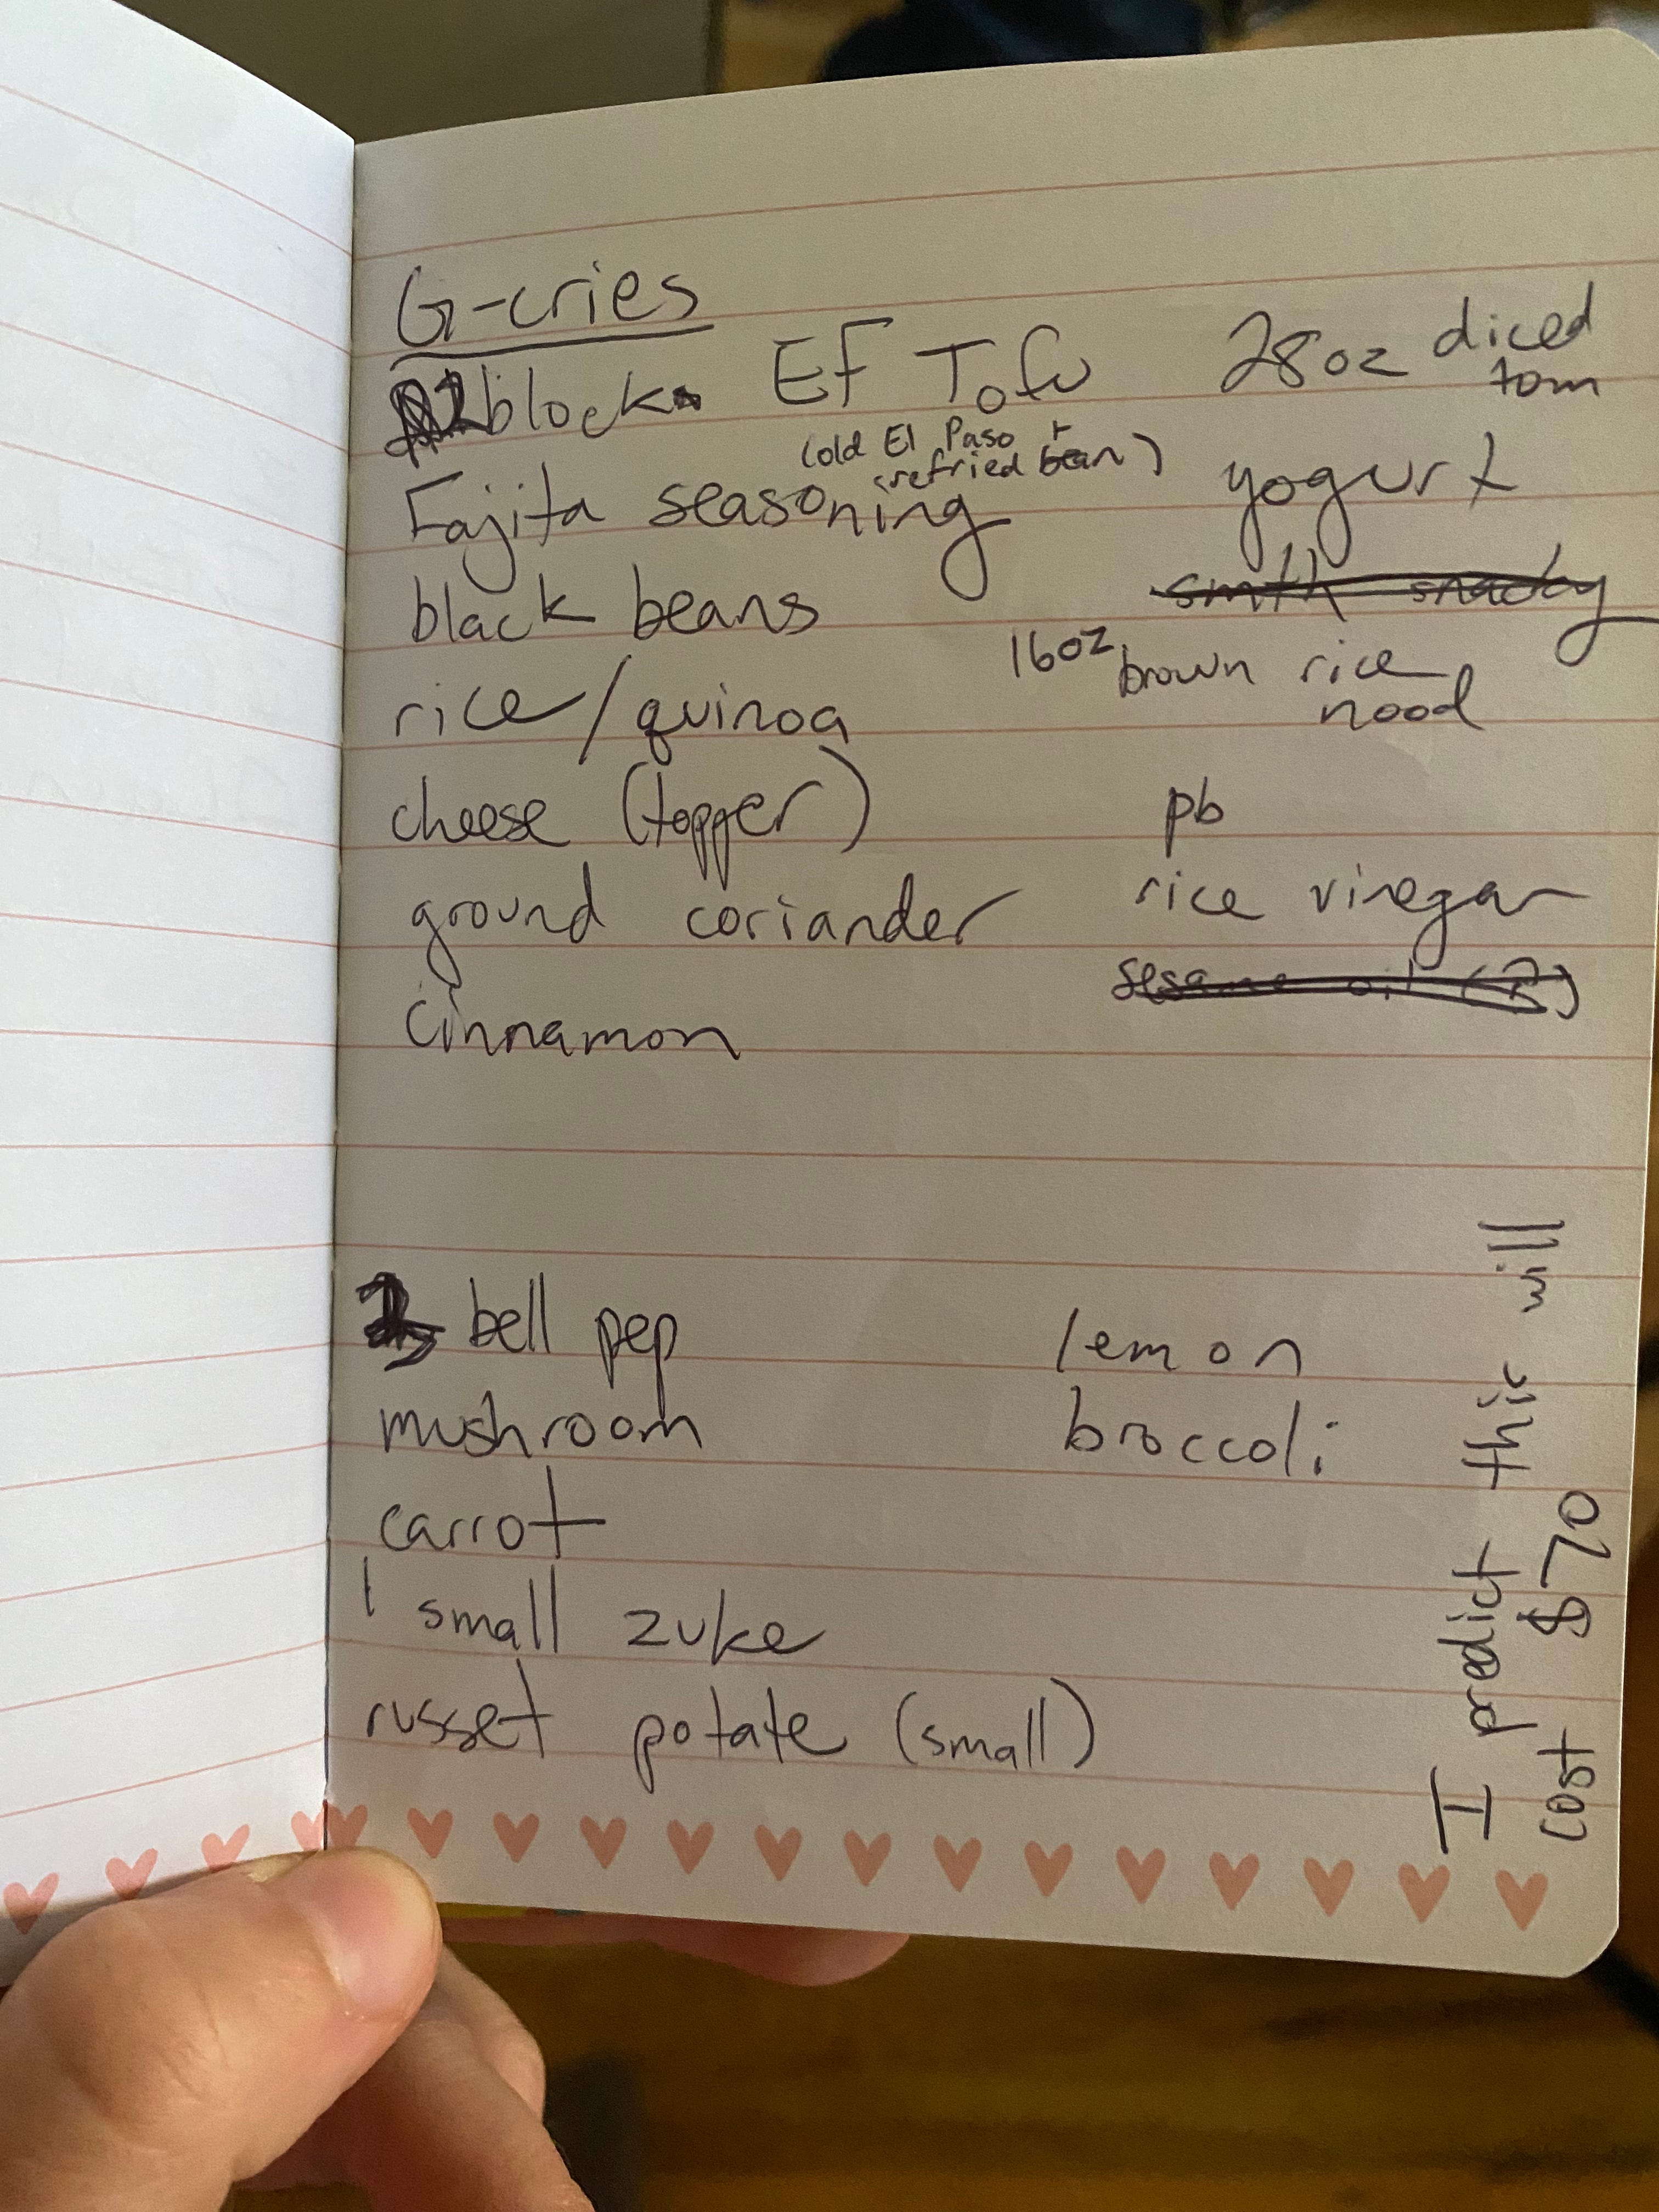 G-cries
block EF Tofu
(old El Paso +
refried bean)
Fajita seasoning
black beans
rice/quinoa
cheese (topper)
ground coriander
cinnamon
28oz diced
tom
yogurt
smth snacky
16oz brown rice
nood
pb
rice vinegar
sesame oil (?)
bell pep
mushroom
carrot
1 small zuke
russet potate (small)
lemon
broccoli
I predict this will
cost $70